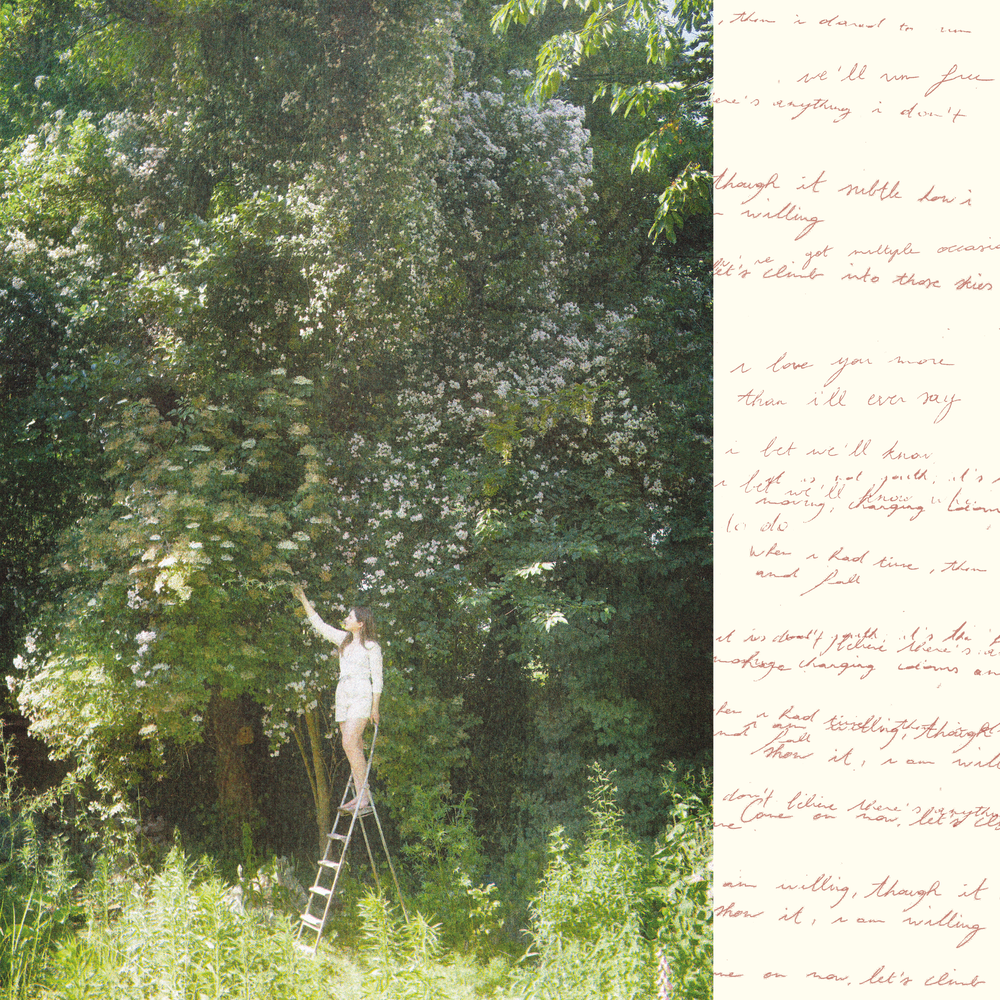 , then i dared to run
. we'll run free
ere's anything i don't
though it subtle how i
willing
i've got multiple occasio
let's climb into those skies
i love you more
than i'll ever say
i bet we'll know
i bet we'll know
it is not youth, it's
moving, changing idioms
to do
when i had time, then
and fall
it is youth, it's the
don't believe there's
changing idioms an
i had
i am willing, though
and fall
show it, i am will
don't bilieve there's anythi
Come on now, let's cli
me
am willing, though it
show it, i am willing
me on now, let's climb